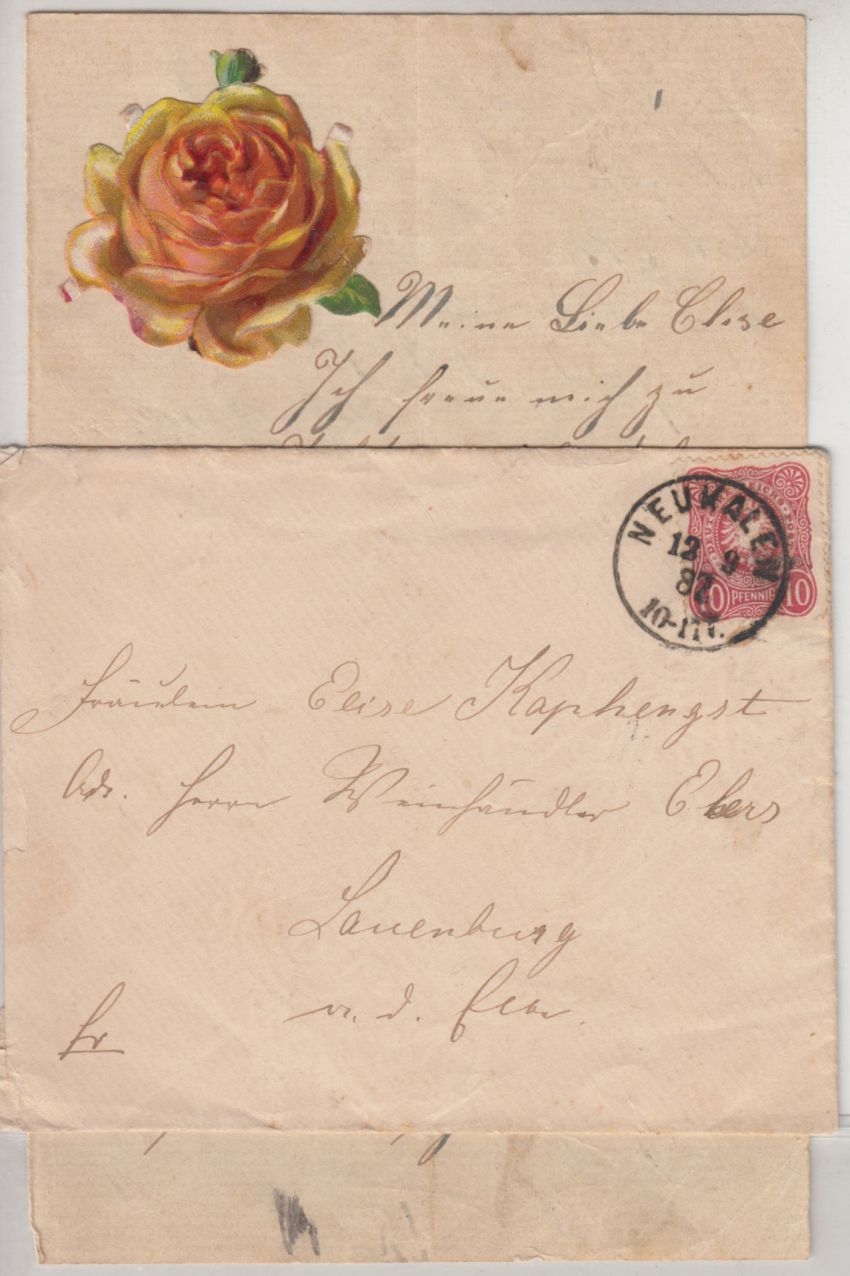 Meine Liebe Elise
Ich freue mich zu
NEUKALEN
12 9
87
10-11V.
10 PFENNIG 10
Fräulein Elise Kaphengst
Adr. Herrn Weinhändler Ebers
Lauenburg
a. d. Elbe.
fr